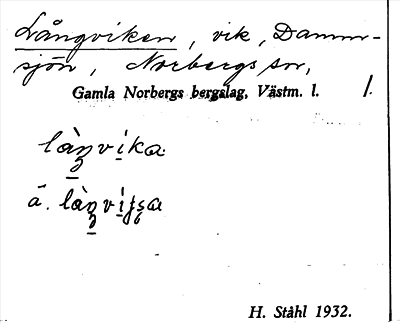 Långviken, vik, Damm-
sjön, Norbergs sn,
Gamla Norbergs bergslag, Västm. l. 1.
làŋvika
ä.
H. Ståhl 1932.